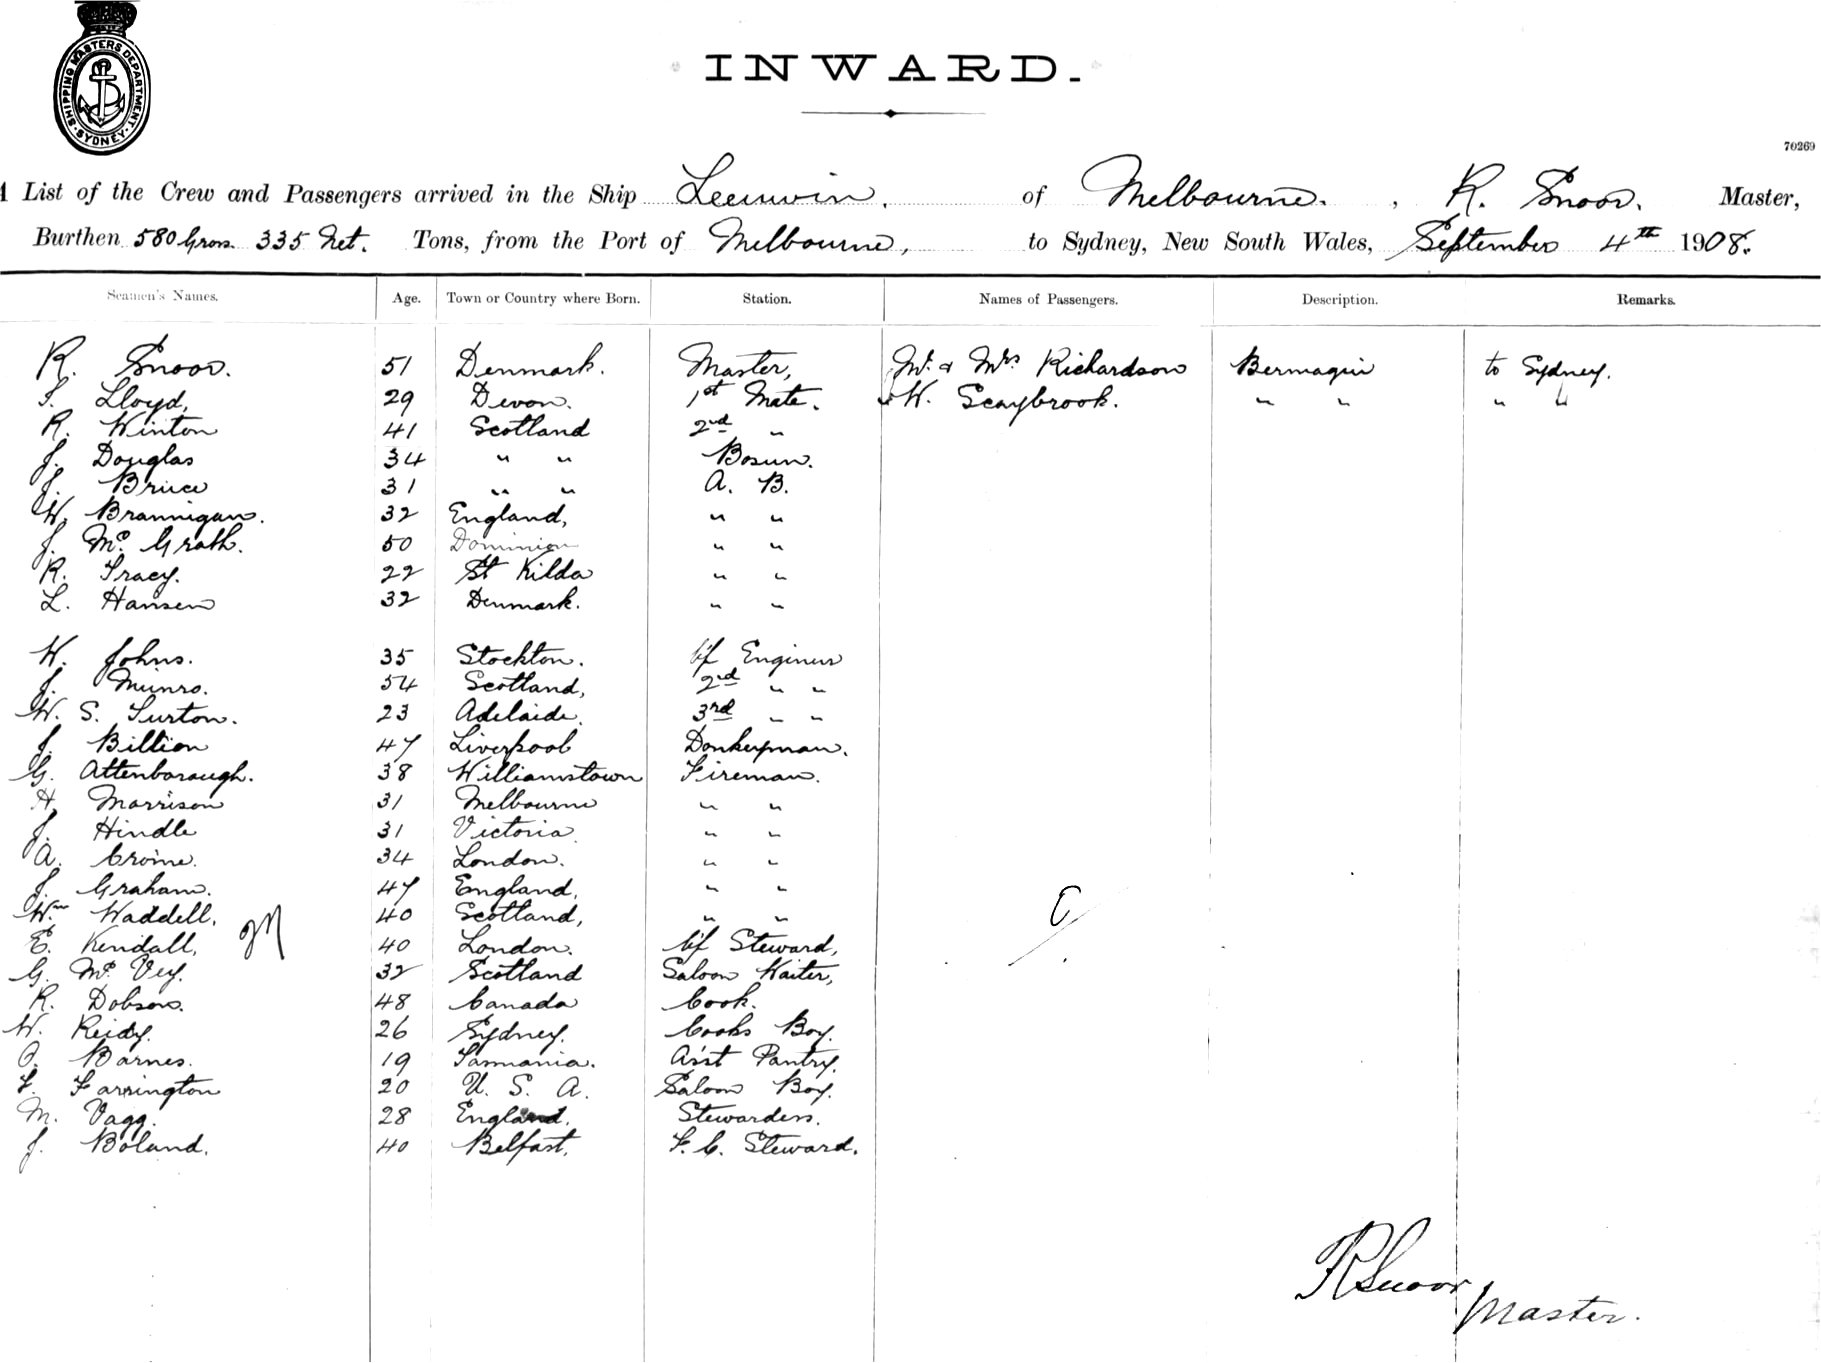 SHIPPING MASTERS DEPARTMENT
SYDNEY
INWARD.
70269
List of the Crew and Passengers arrived in the Ship Leeuwin, of Melbourne. , R. Snoor. Master,
Burthen 580 Gross. 335 Net. Tons, from the Port of Melbourne, to Sydney, New South Wales, September 4th 1908.
Seamen's Names. Age. Town or Country where Born. Station. Names of Passengers. Description. Remarks.
R. Snoor. 51 Denmark. Master, Mr. & Mrs Richardson Bermagui to Sydney.
Lloyd, 29 Devon. 1st Mate. W. Scaybrook. " " " "
R. Winton 41 Scotland 2nd "
J. Douglas 34 " " Bosun.
J. Bruce 31 " " A. B.
W. Brannigan. 32 England, " "
J. Mc Grath. 50 Dominion " "
R. Tracy. 22 St Kilda " "
L. Hansen 32 Denmark. " "
W. Johns. 35 Stockton. Cf Engineer
J. Munro. 54 Scotland, 2nd " "
W. S. Turton. 23 Adelaide. 3rd " "
J. Billion 47 Liverpool Donkeyman.
G. Attenborough. 38 Williamstown Fireman.
H. Morrison 31 Melbourne " "
J. Hindle 31 Victoria " "
A. Crome. 34 London. " "
J. Graham. 47 England, " "
Wm Waddell. 40 Scotland, " "
E. Kendall, 40 London. Cf Steward,
G. Mc Vey. 32 Scotland Saloon Waiter,
R. Dobson. 48 Canada Cook.
W. Reidy. 26 Sydney. Cooks Boy.
O. Barnes. 19 Tasmania. Asst Pantry.
F. Farrington 20 U. S. A. Saloon Boy.
M. Vagg. 28 England. Stewardess.
J. Boland. 40 Belfast. F. C. Steward.
R Snoor Master.